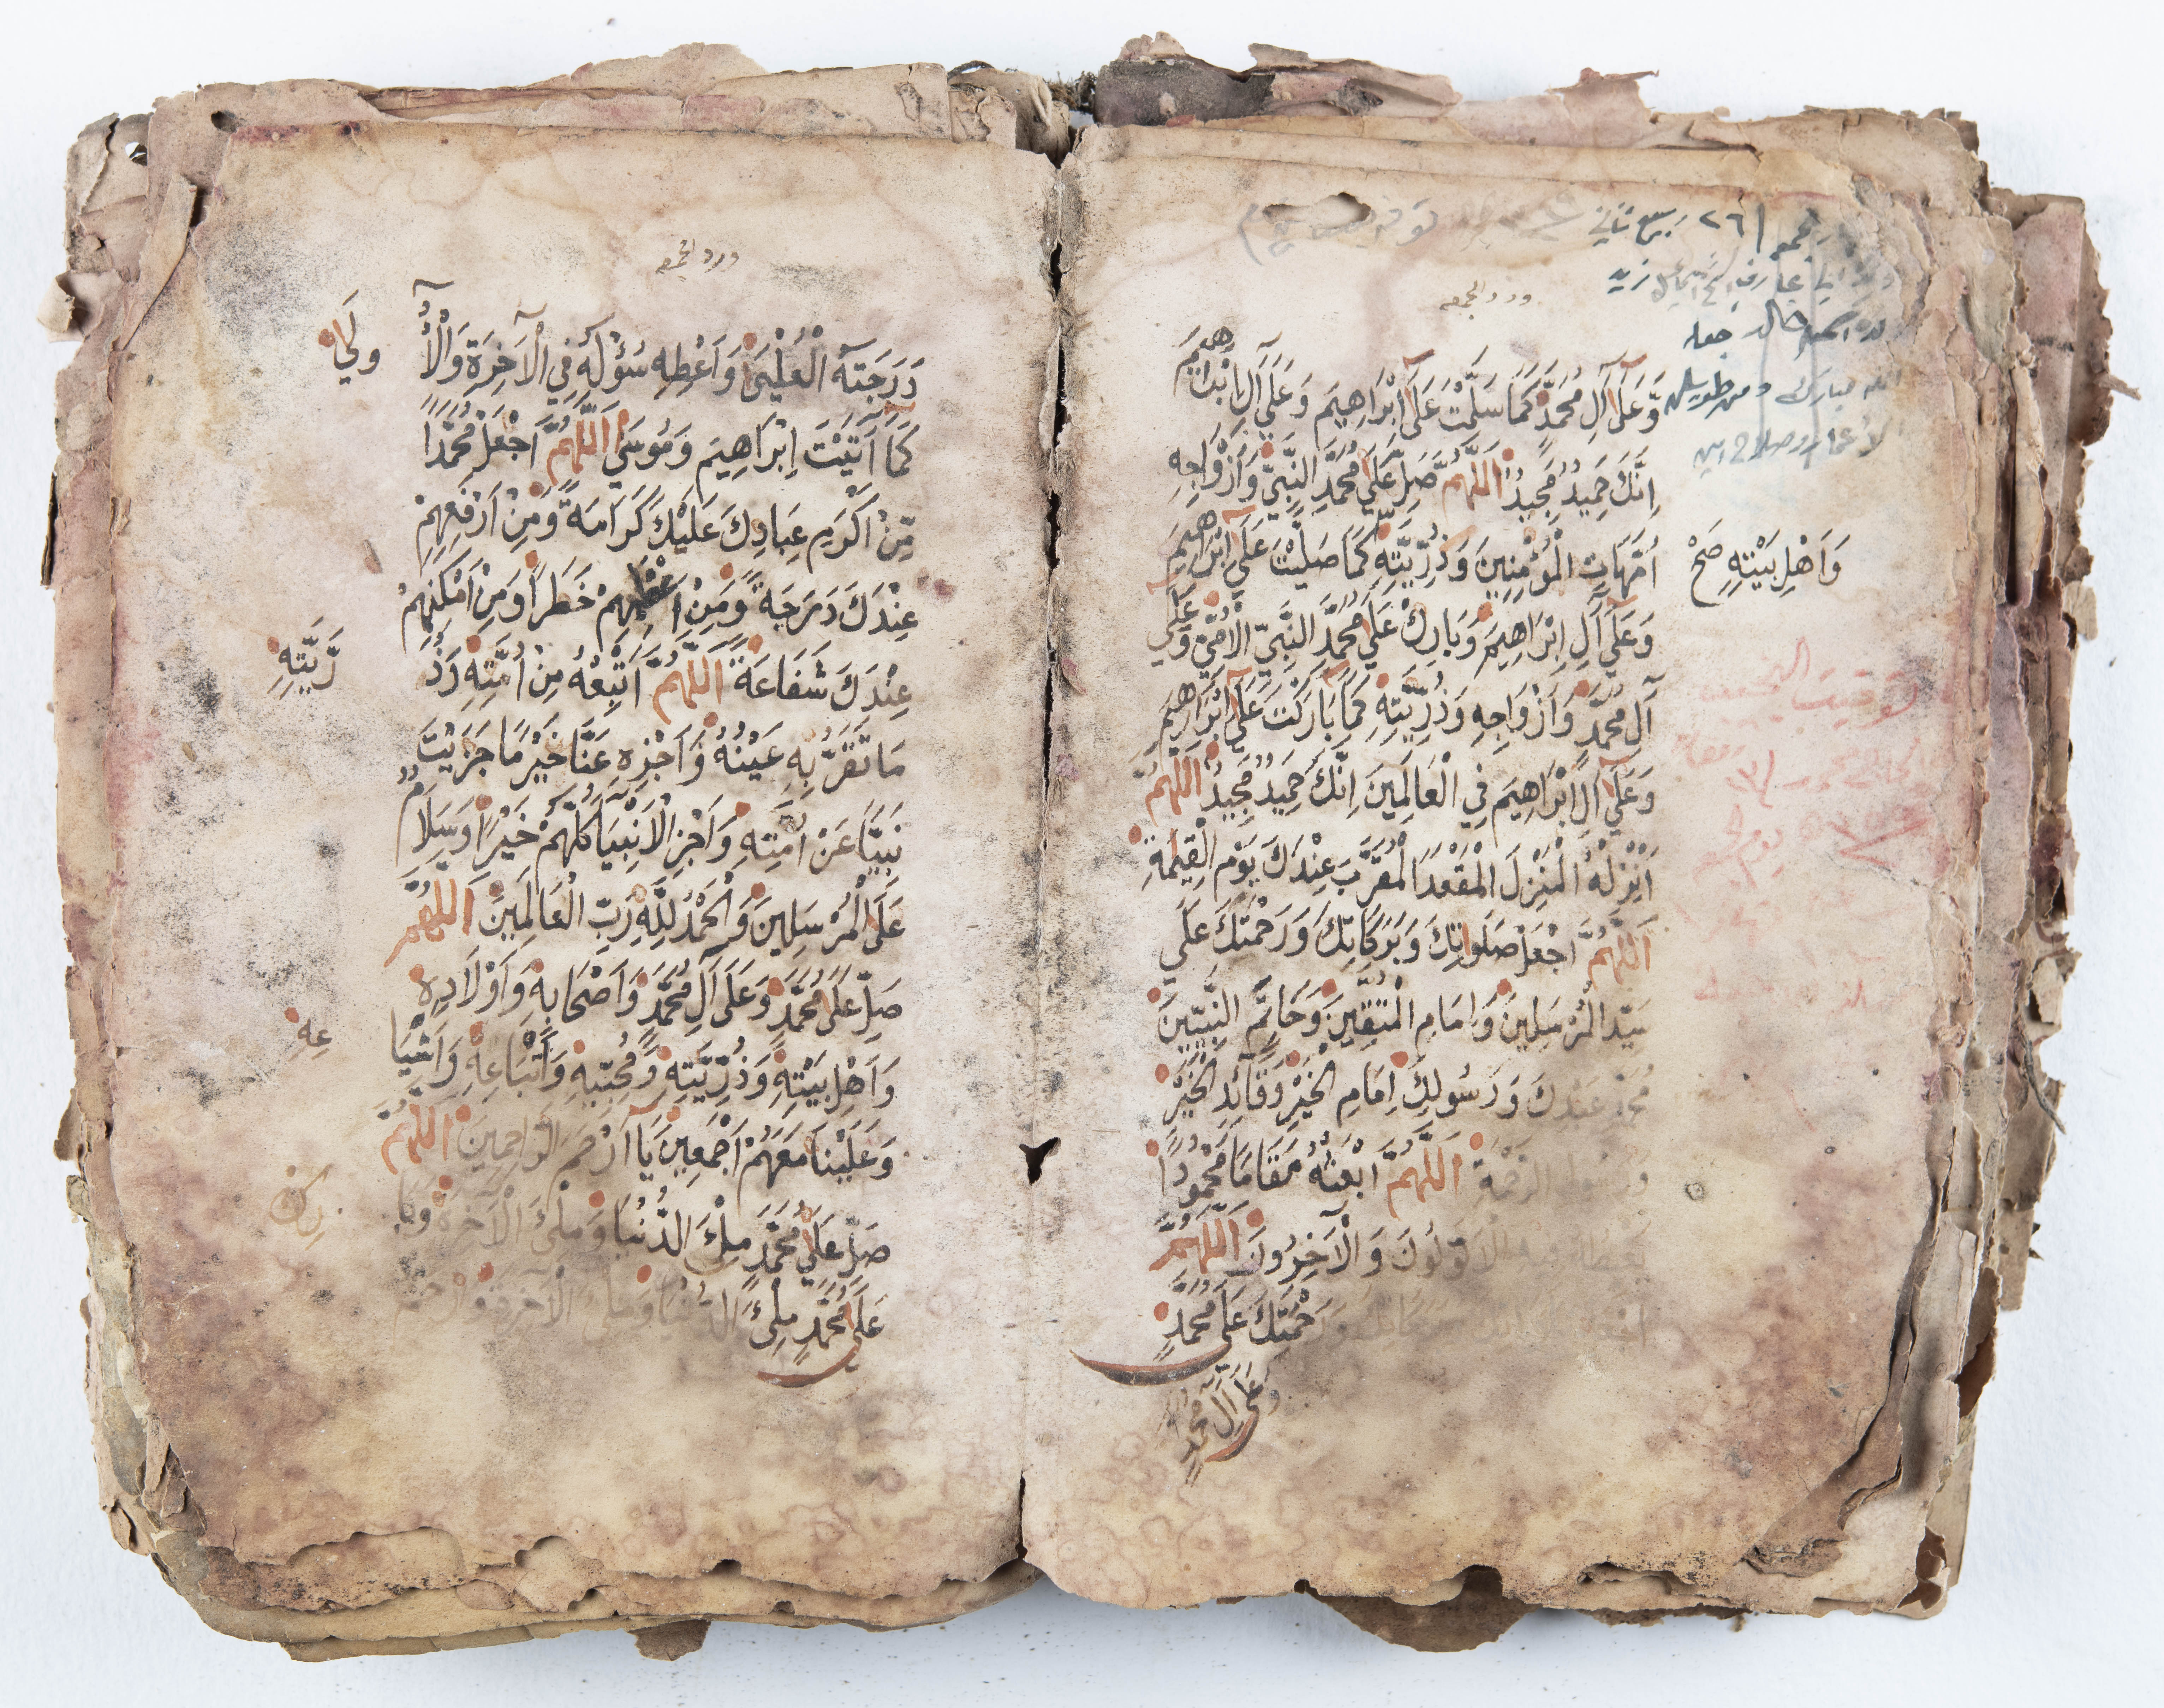 ٢٦ ربيع ثاني
ورد الجمعه
وَّعَلَى آلِ مُحَمَّدٍ كَمَا سَلَّمْتَ عَلَى اِبْرَاهِيمَ وَعَلَى آلِ اِبْرَاهِيمَ
اِنَّكَ حَمِيدٌ مَّجِيدٌ اَللّٰهُمَّ صَلِّ عَلَى مُحَمَّدٍ النَّبِيِّ وَاَزْوَاجِهِ
اُمَّهَاتِ الْمُؤْمِنِينَ وَذُرِّيَّتِهِ كَمَا صَلَّيْتَ عَلَى اِبْرَاهِيمَ
وَاَهْلِ بَيْتِهِ صَحّ
وَعَلَى آلِ اِبْرَاهِيمَ وَبَارِكْ عَلَى مُحَمَّدٍ النَّبِيِّ الْاُمِّيِّ وَعَلَى
آلِ مُحَمَّدٍ وَاَزْوَاجِهِ وَذُرِّيَّتِهِ كَمَا بَارَكْتَ عَلَى اِبْرَاهِيمَ
وَعَلَى آلِ اِبْرَاهِيمَ فِي الْعَالَمِينَ اِنَّكَ حَمِيدٌ مَّجِيدٌ اَللّٰهُمَّ
اَنْزِلْهُ الْمَنْزِلَ الْمَقْعَدَ الْمُقَرَّبَ عِنْدَكَ يَوْمَ الْقِيٰمَةِ
اَللّٰهُمَّ اجْعَلْ صَلَوَاتِكَ وَبَرَكَاتِكَ وَرَحْمَتَكَ عَلَى
سَيِّدِ الْمُرْسَلِينَ وَاِمَامِ الْمُتَّقِينَ وَخَاتَمِ النَّبِيِّينَ
مُحَمَّدٍ عَبْدِكَ وَرَسُولِكَ اِمَامِ الْخَيْرِ وَقَائِدِ الْخَيْرِ
الرَّحْمَةِ اَللّٰهُمَّ ابْعَثْهُ مَقَامًا مَّحْمُودًا
يَغْبِطُهُ فِيهِ الْاَوَّلُونَ وَالْآخِرُونَ اَللّٰهُمَّ
وَرَحْمَتَكَ عَلَى مُحَمَّدٍ
وَعَلَى آلِ مُحَمَّدٍ
ورد الجمعه
دَرَجَتَهُ الْعُلْيٰى وَاَعْطِهِ سُؤْلَهُ فِي الْآخِرَةِ وَالْاُ
ولَى
كَمَا آتَيْتَ اِبْرَاهِيمَ وَمُوسَى اَللّٰهُمَّ اجْعَلْ مُحَمَّدًا
مِّنْ اَكْرَمِ عِبَادِكَ عَلَيْكَ كَرَامَةً وَّمِنْ اَرْفَعِهِمْ
عِنْدَكَ دَرَجَةً وَّمِنْ اَعْظَمِهِمْ خَطَرًا وَّمِنْ اَمْكَنِهِمْ
عِنْدَكَ شَفَاعَةً اَللّٰهُمَّ اَتْبِعْهُ مِنْ اُمَّتِهِ وَذُ
رِّيَّتِهِ
مَا تَقَرُّ بِهِ عَيْنُهُ وَاَجْزِهِ عَنَّا خَيْرَ مَا جَزَيْتَ
نَبِيًّا عَنْ اُمَّتِهِ وَاَجْزِ الْاَنْبِيَا كُلَّهُمْ خَيْرًا وَّسَلَامٌ
عَلَى الْمُرْسَلِينَ وَالْحَمْدُ لِلّٰهِ رَبِّ الْعَالَمِينَ اَللّٰهُمَّ
صَلِّ عَلَى مُحَمَّدٍ وَّعَلَى آلِ مُحَمَّدٍ وَّاَصْحَابِهِ وَاَوْلَادِهِ
وَاَهْلِ بَيْتِهِ وَذُرِّيَّتِهِ وَمُحِبِّيهِ وَاَتْبَاعِهِ وَاَشْيَا
عِهِ
وَعَلَيْنَا مَعَهُمْ اَجْمَعِينَ يَا اَرْحَمَ الرَّاحِمِينَ اَللّٰهُمَّ
صَلِّ عَلَى مُحَمَّدٍ مِلْئَ الدُّنْيَا وَمِلْئَ الْآخِرَةِ وَبَا
رِكْ
عَلَى مُحَمَّدٍ مِلْئَ الدُّنْيَا وَمِلْئَ الْآخِرَةِ